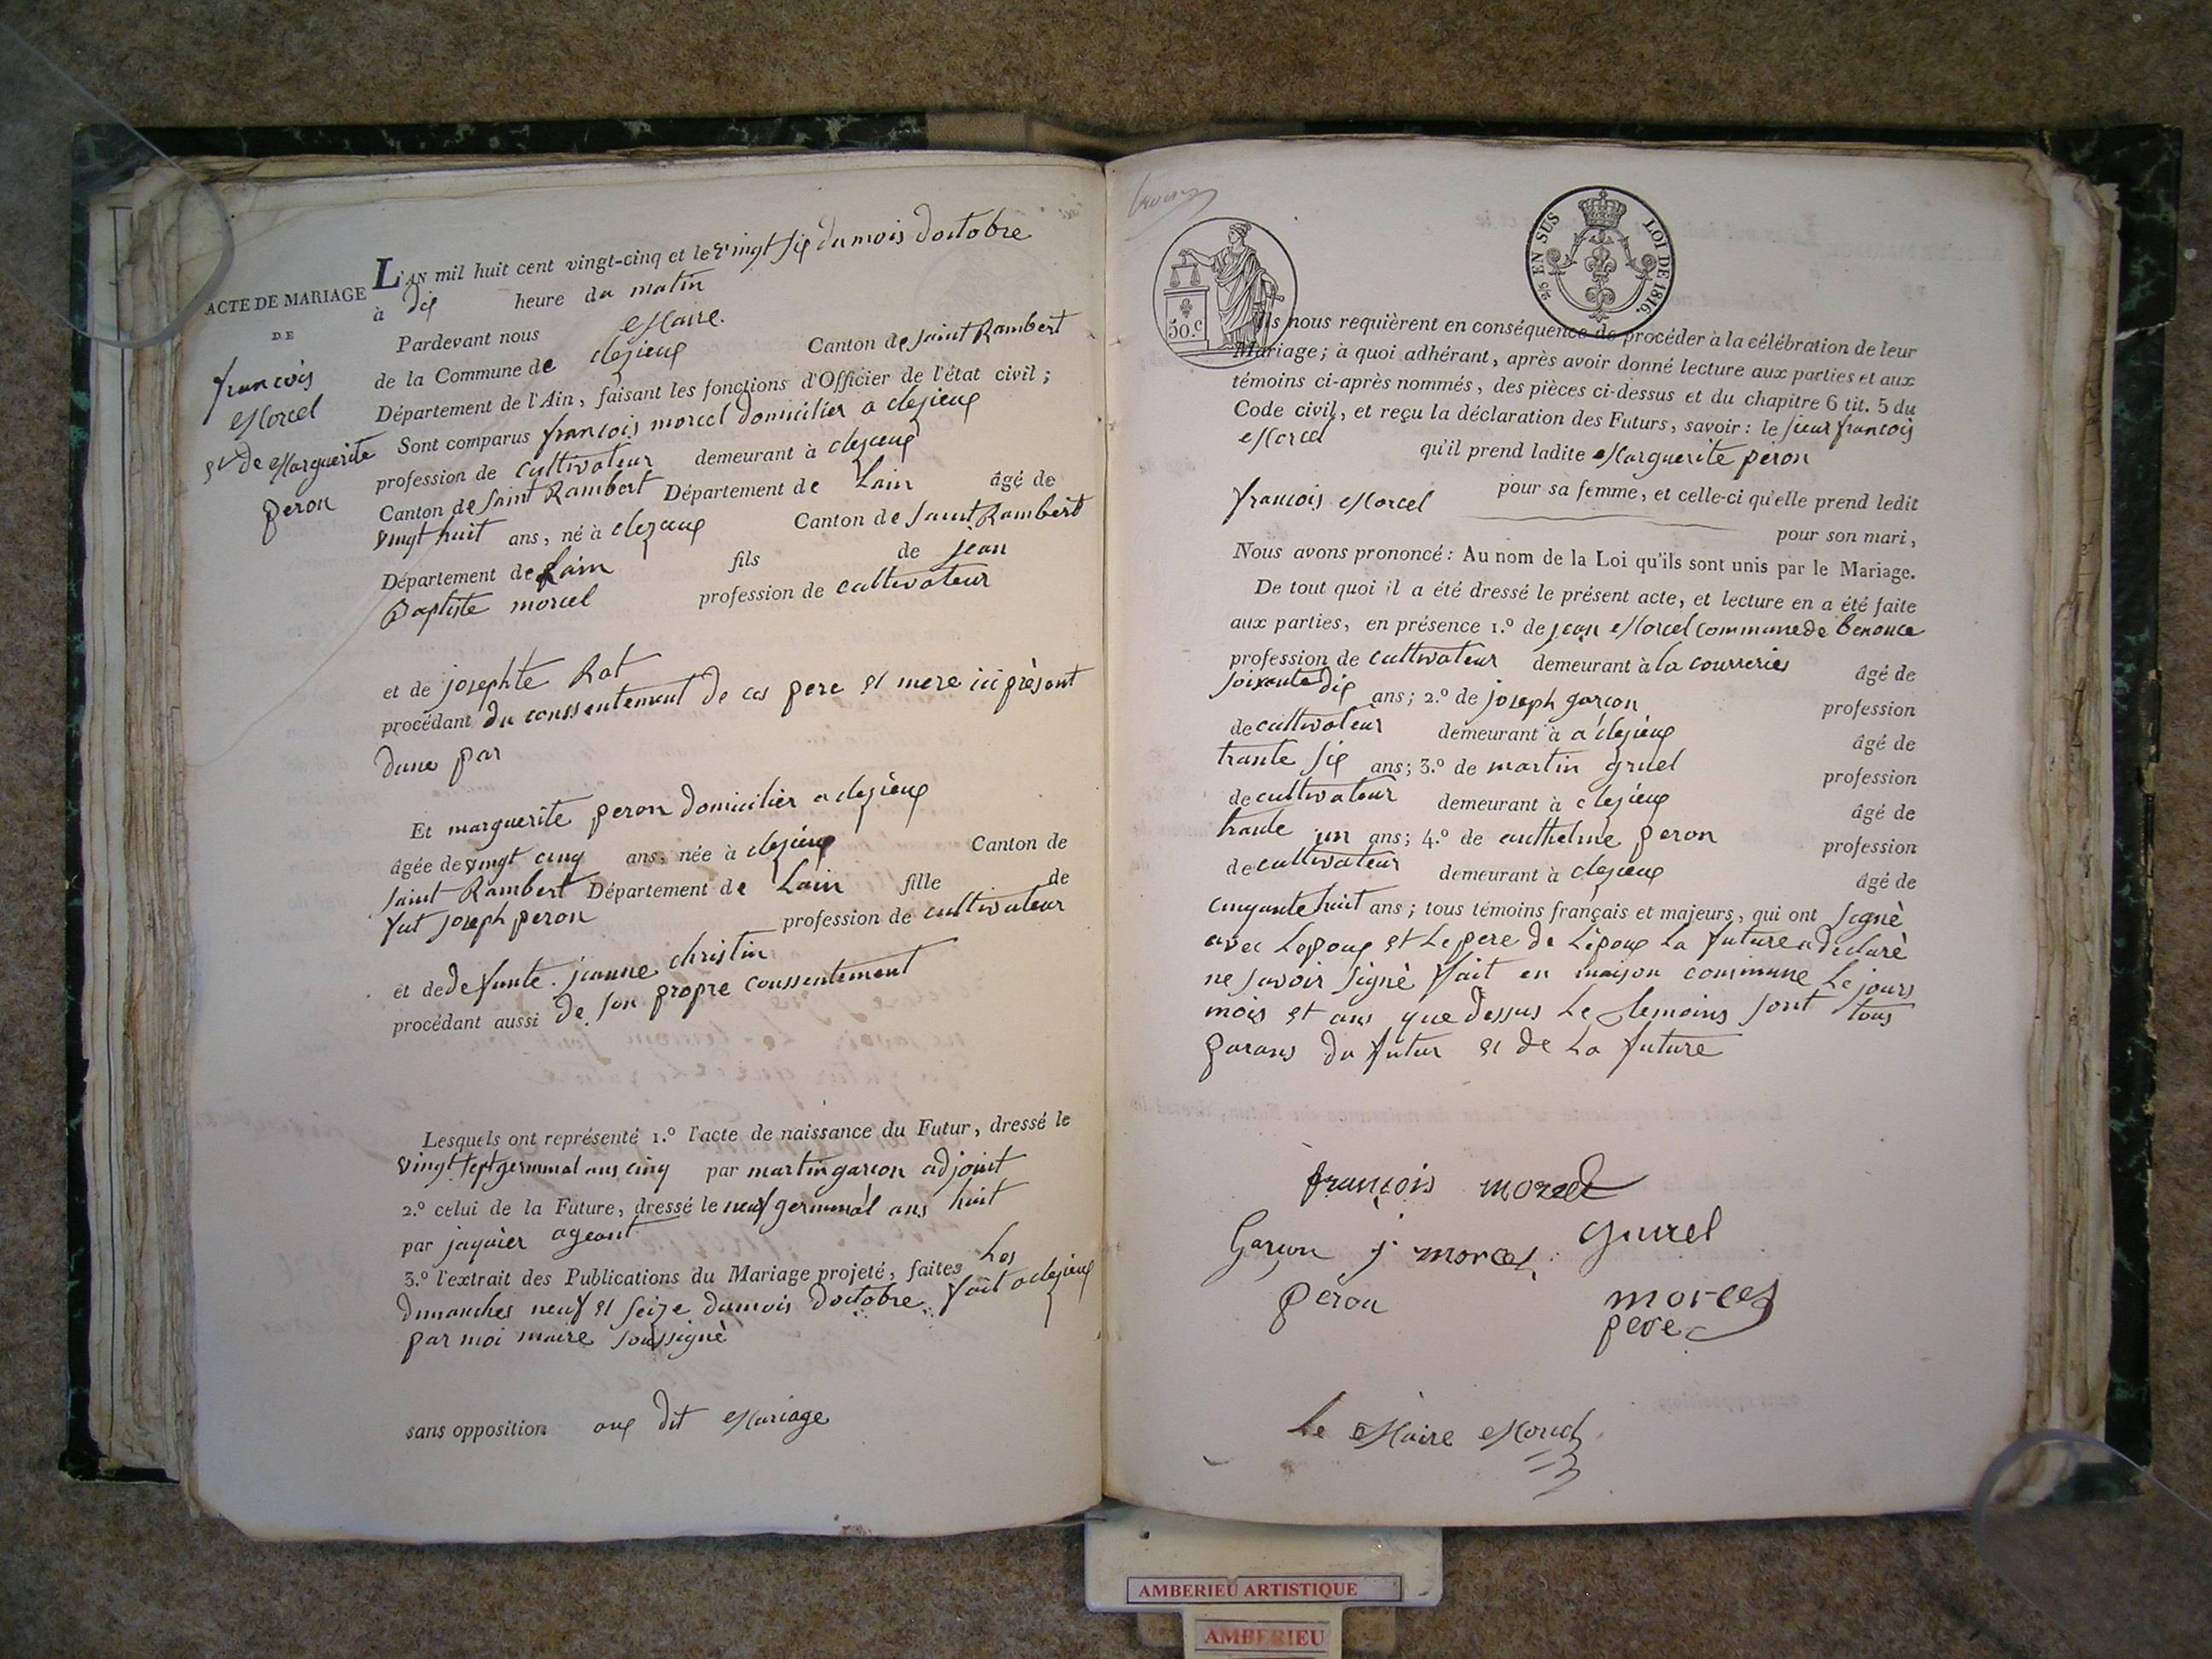 ACTE DE MARIAGE
DE
françois
Morel
et de Marguerite
peron
L'AN mil huit cent vingt-cinq et le vingt six du mois doctobre
à dix heure du matin
Pardevant nous Maire
de la Commune de clezieux Canton de saint Rambert
Département de l'Ain, faisant les fonctions d'Officier de l'état civil;
Sont comparus françois morcel domicilier a clezieux
profession de cultivateur demeurant à clezieux
Canton de saint Rambert Département de Lain âgé de
vingt huit ans, né à clezieux Canton de saint Rambert
Département de Lain fils de jean
Baptiste morcel profession de cultivateur
et de josephte Rat
procédant du conssentement de ces pere et mere ici présent
dune par
Et marguerite peron domicilier a clezieux
âgée de vingt cinq ans, née à clezieux Canton de
saint Rambert Département de Lain fille de
fut joseph peron profession de cultivateur
et de defunte jeanne christin
procédant aussi de son propre conssentement
Lesquels ont représenté 1.º l'acte de naissance du Futur, dressé le
vingt sept germinal ans cinq par martin garcon adjoint
2.º celui de la Future, dressé le neuf germinal ans huit
par jaquier ageant
3.º l'extrait des Publications du Mariage projeté, faites Les
dimanches neuf et seize dumois doctobre fait a clezieux
par moi maire soussigné
sans opposition aux dit Mariage
50.c
2/5 EN SUS LOI DE 1816.
Ils nous requièrent en conséquence de procéder à la célébration de leur
Mariage; à quoi adhérant, après avoir donné lecture aux parties et aux
témoins ci-après nommés, des pièces ci-dessus et du chapitre 6 tit. 5 du
Code civil, et reçu la déclaration des Futurs, savoir: le sieur françois
Morcel qu'il prend ladite Marguerite peron
pour sa femme, et celle-ci qu'elle prend ledit
francois Morcel pour son mari,
Nous avons prononcé: Au nom de la Loi qu'ils sont unis par le Mariage.
De tout quoi il a été dressé le présent acte, et lecture en a été faite
aux parties, en présence 1.º de jean Morcel commune de benonce
profession de cultivateur demeurant à la courreries âgé de
soixante dix ans; 2.º de joseph garcon profession
de cultivateur demeurant à a clezieux âgé de
trante six ans; 3.º de martin gruel profession
de cultivateur demeurant à clezieux âgé de
trante un ans; 4.º de anthelme peron profession
de cultivateur demeurant à clezieux âgé de
cinquante huit ans; tous témoins français et majeurs, qui ont signé
avec Lepoux et Le pere de Lépoux La future a declaré
ne savoir signé fait en maison commune Le jours
mois et ans que dessus Le temoins sont tous
parans du futur et de La future
françois morcel
Garçon j. morcel gurrel
péron morcel
pere
Le Maire Morcel
AMBERIEU ARTISTIQUE
AMBERIEU